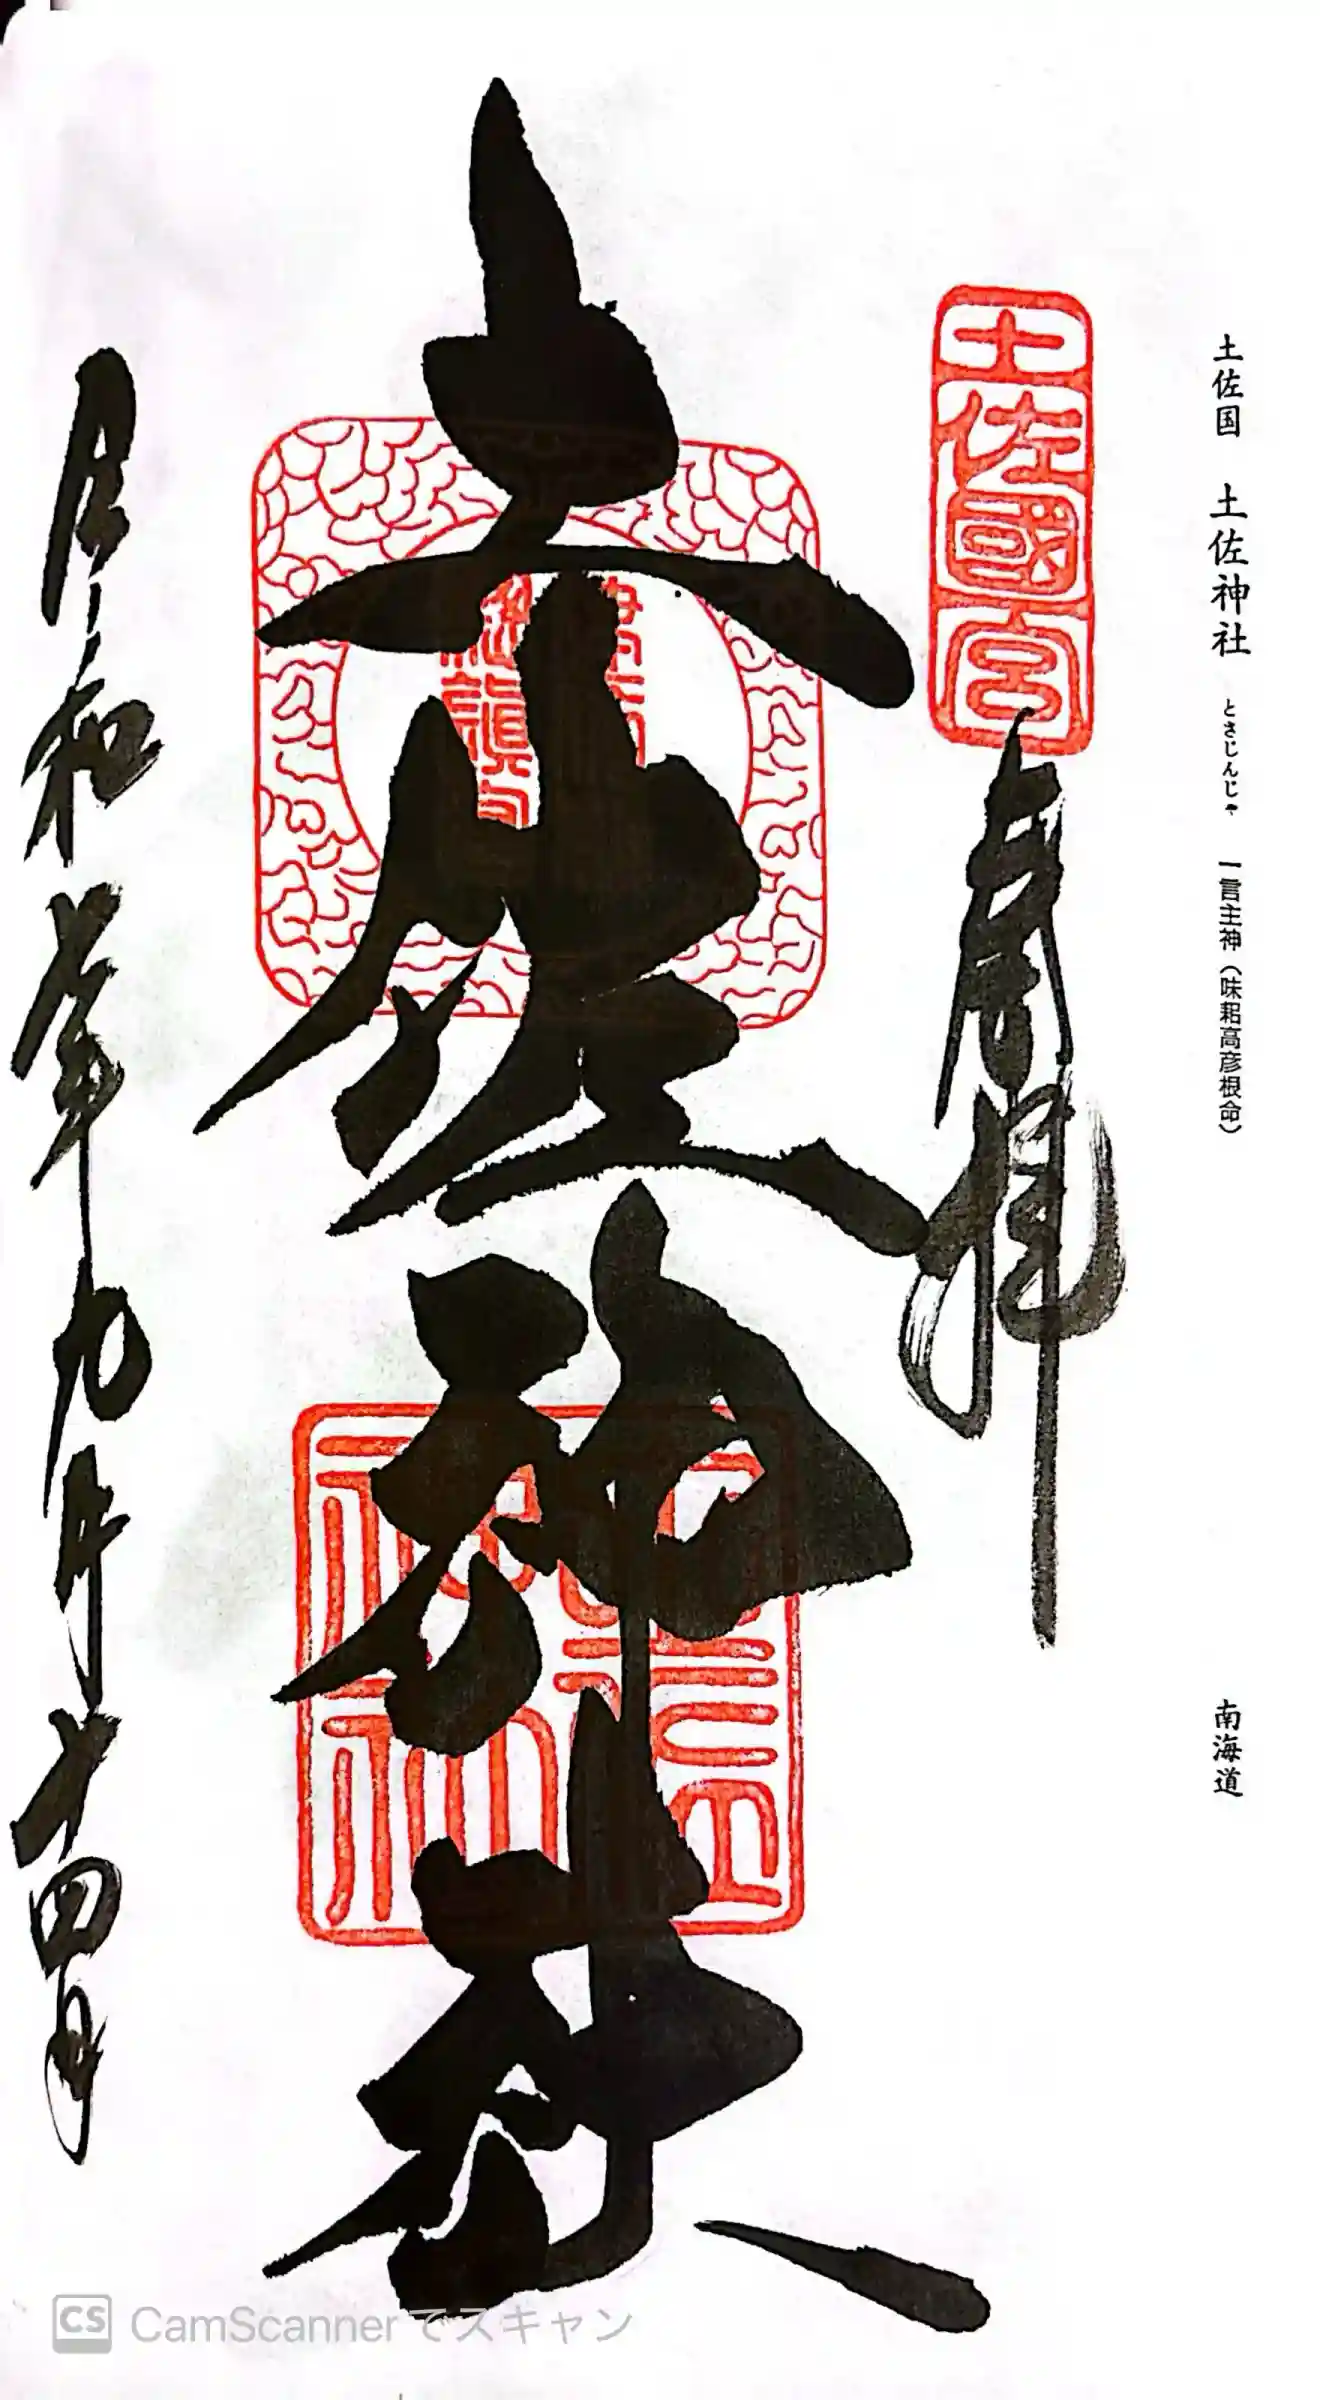 土佐国 土佐神社 とさじんじゃ 一言主神(味耜高彦根命) 南海道
土佐國宮
奉拝
土佐神社
令和 年九月十四日
CS CamScannerでスキャン